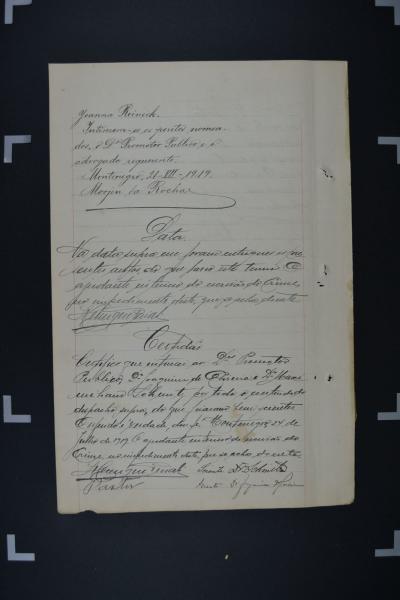 Joanna Reineck.
Intimem-se os peritos nomea-
dos, o Dr. Promotor Publico e o
advogado requerente.
Montenegro, 21-VII-1919.
Morjen da Rocha
Data
Na data supra me foram entregues os pre-
sentes autos do que lavro este termo. O
ajudante interino do escrivão do Crime,
por impedimento deste, que se acha doente
Certidão
Certifico que intimei ao Dr. Promotor
Publico, Dr. Joaquim de e Dr. Maxi-
miliano Schmitt, por todo o conteudo do
despacho supra, do que ficaram bem scientes
O referido é verdade, dou fé. Montenegro 24 de
Julho de 1919. O ajudante interino do escrivão do
Crime, no impedimento deste, que se acha doente
Sciente Dr Schmitt
Sciente Dr Joaquim